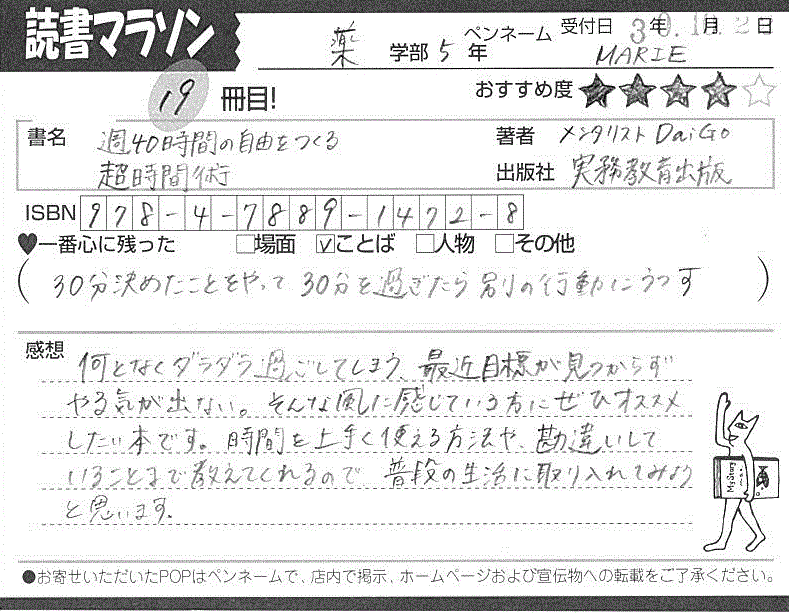 読書マラソン
薬 学部 5 年
ペンネーム MARIE
受付日 30年10月2日
19 冊目!
おすすめ度 ★★★★☆
書名 週40時間の自由をつくる
超時間術
著者 メンタリスト DaiGo
出版社 実務教育出版
ISBN 978-4-7889-1472-8
♥一番心に残った □場面 ☑ことば □人物 □その他
(30分決めたことをやって 30分を過ぎたら別の行動にうつす)
感想
何となくダラダラ過ごしてしまう、最近目標が見つからず
やる気が出ない。そんな風に感じている方にぜひオススメ
したい本です。時間を上手く使える方法や、勘違いして
いることまで教えてくれるので 普段の生活に取り入れてみよう
と思います。
My Story
●お寄せいただいたPOPはペンネームで、店内で掲示、ホームページおよび宣伝物への転載をご了承ください。